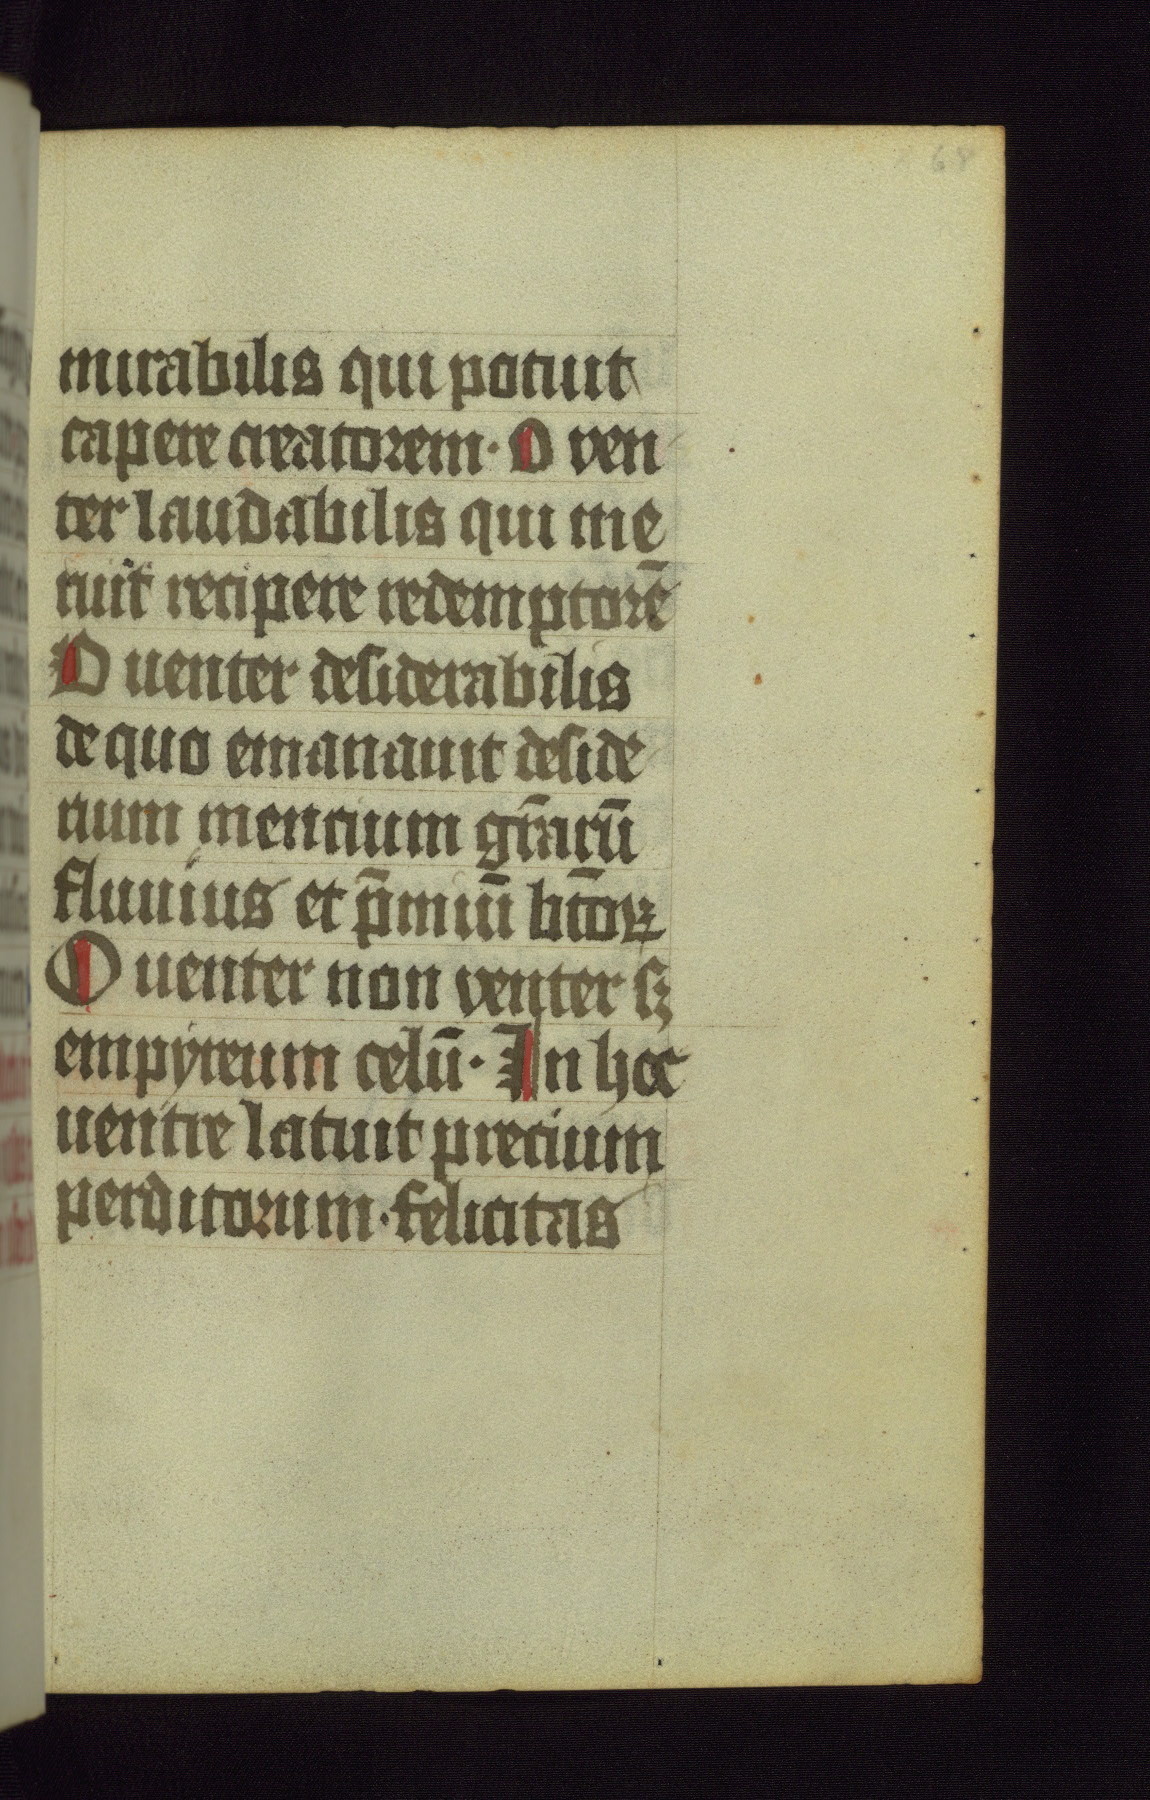 68
mirabilis qui potuit
capere creatorem· O ven
ter laudabilis qui me
ruit recipere redemptorē
O uenter desiderabilis
de quo emanauit deside
rium mentium gr̄arū
fluuius et p̄miū bt̄oꝝ
O uenter non venter sꝫ
empyreum celū· In hoc
uentre latuit precium
perditorum· felicitas